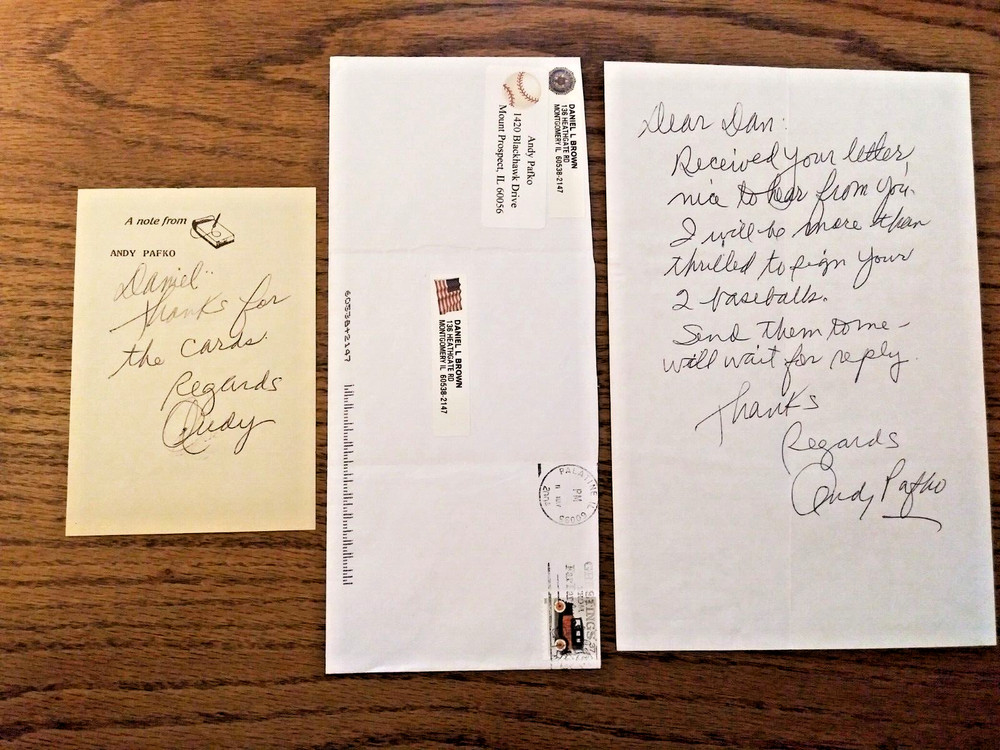 A note from
ANDY PAFKO
Daniel:
Thanks for
the cards.
Regards
Andy
DANIEL L BROWN
136 HEATHGATE RD
MONTGOMERY IL 60538-2147
Andy Pafko
1420 Blackhawk Drive
Mount Prospect, IL 60056
DANIEL L BROWN
136 HEATHGATE RD
MONTGOMERY IL 60538-2147
6053842147
PALATINE IL
PM
2004
GREETINGS
Dear Dan:
Received your letter,
nice to hear from you.
I will be more than
thrilled to sign your
2 baseballs.
Send them to me -
will wait for reply.
Thanks
Regards
Andy Pafko